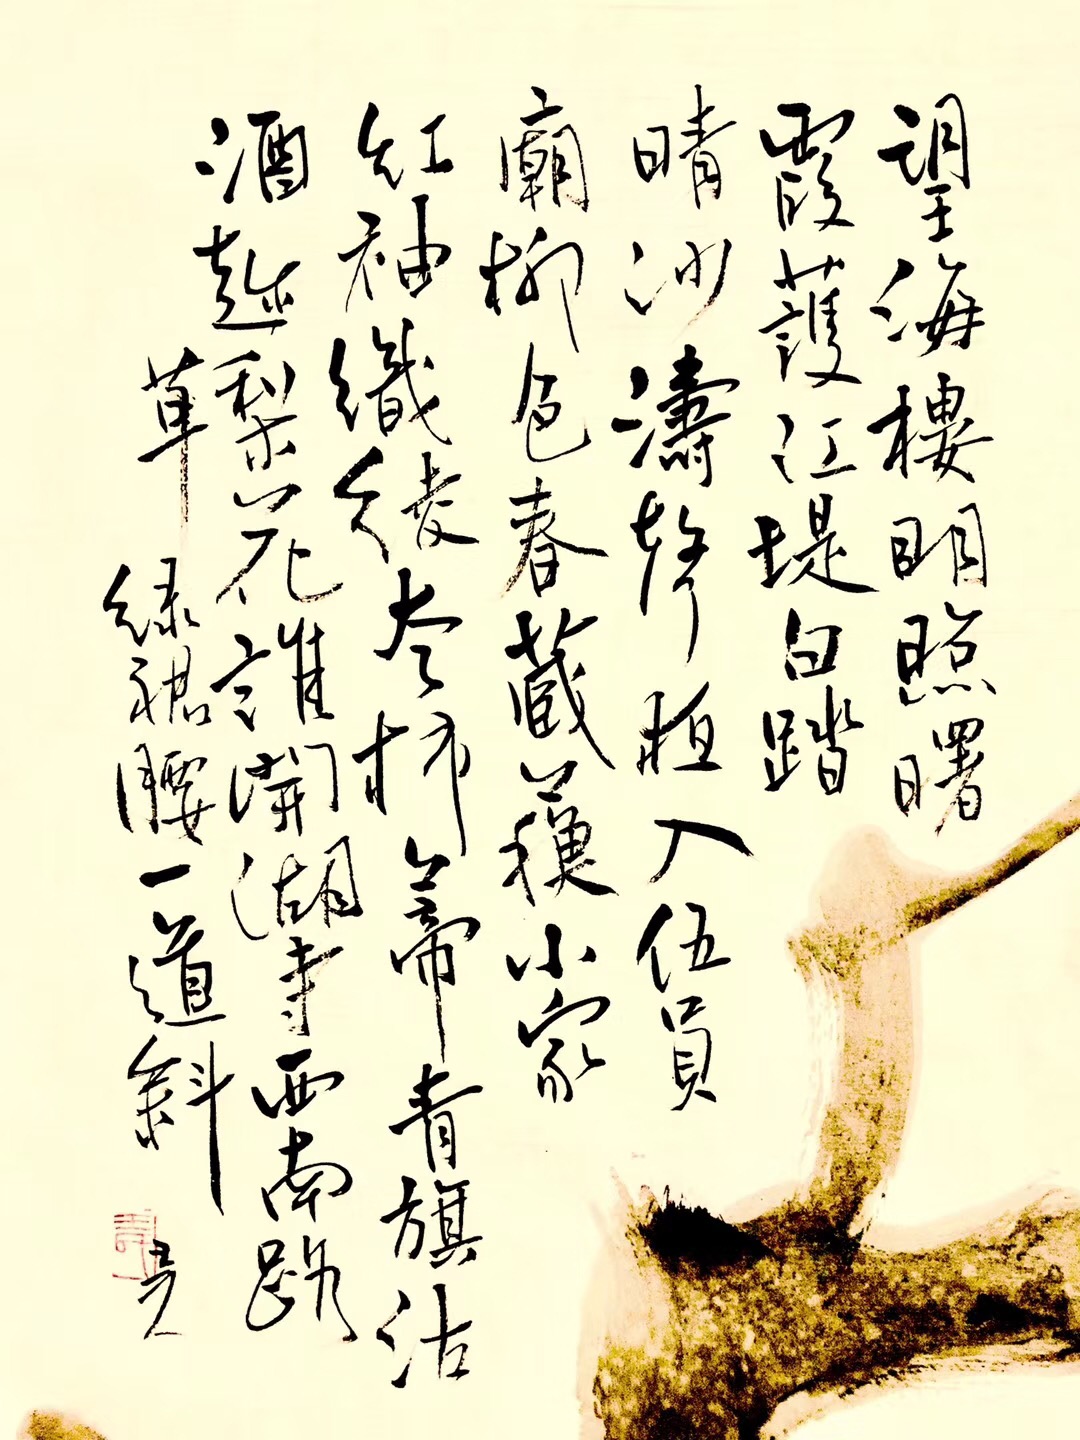 望海樓明照曙
霞護江堤白踏
晴沙濤聲夜入伍員
廟柳色春藏蘇小家
紅袖織綾夸柿蒂青旗沽
酒趁梨花誰開湖寺西南路
草綠裙腰一道斜